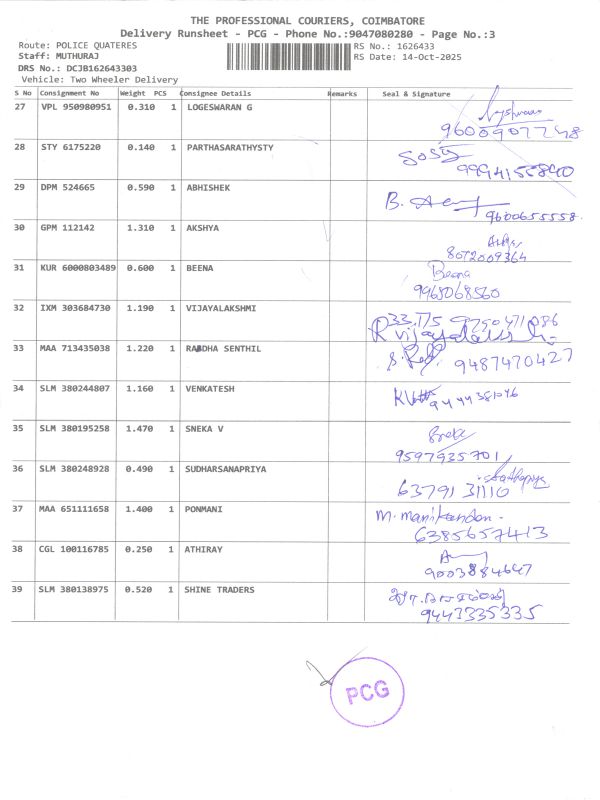 THE PROFESSIONAL COURIERS, COIMBATORE
Delivery Runsheet - PCG - Phone No.:9047080280 - Page No.:3
Route: POLICE QUATERES RS No.: 1626433
Staff: MUTHURAJ RS Date: 14-Oct-2025
DRS No.: DCJB162643303
Vehicle: Two Wheeler Delivery
S No Consignment No Weight PCS Consignee Details Remarks Seal & Signature
27 VPL 950980951 0.310 1 LOGESWARAN G
9600907248
28 STY 6175220 0.140 1 PARTHASARATHYSTY
9994155840
29 DPM 524665 0.590 1 ABHISHEK B.
9600655558.
30 GPM 112142 1.310 1 AKSHYA
8072009364
31 KUR 6000803489 0.600 1 BEENA Beena
9963068560
32 IXM 303684730 1.190 1 VIJAYALAKSHMI
R Vijayalakshmi
33 MAA 713435038 1.220 1 RABDHA SENTHIL 9487470427
34 SLM 380244807 1.160 1 VENKATESH
35 SLM 380195258 1.470 1 SNEKA V
9597935701
36 SLM 380248928 0.490 1 SUDHARSANAPRIYA
6379131110
37 MAA 651111658 1.400 1 PONMANI M. manikandan.
6385657413
38 CGL 100116785 0.250 1 ATHIRAY
9003884647
39 SLM 380138975 0.520 1 SHINE TRADERS
9443335335
PCG